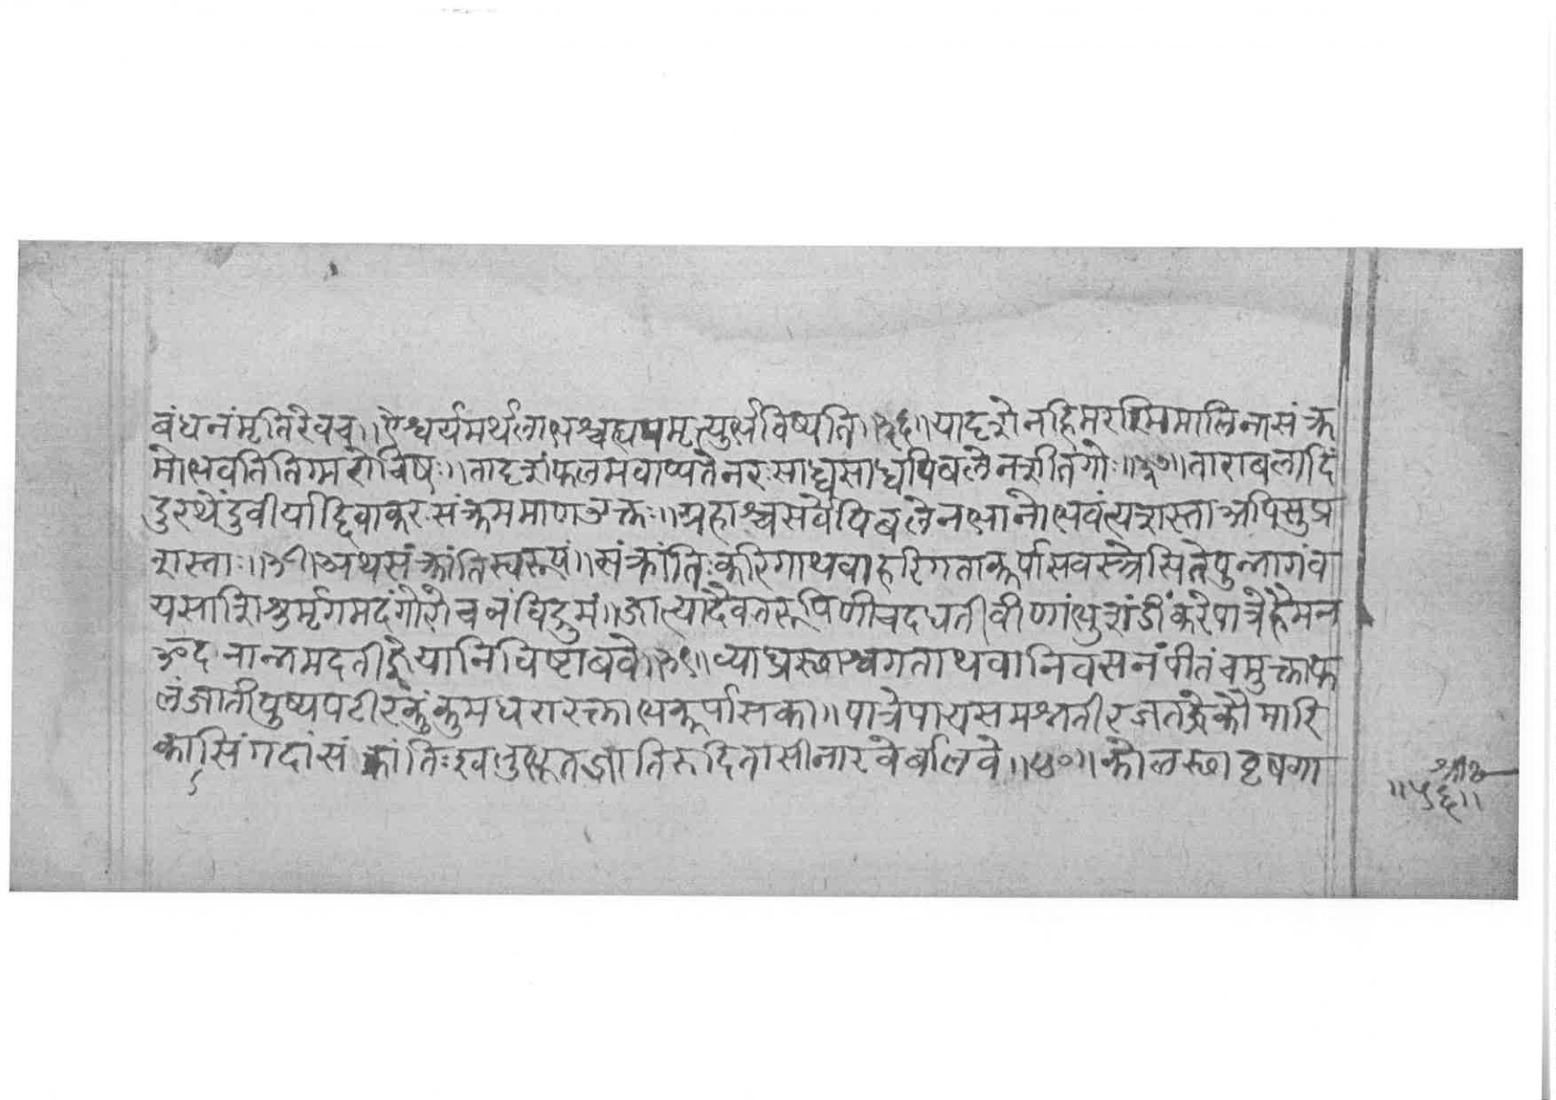 बंधनंमृतिरेवच॥ऐश्वर्यमर्थलाभश्चह्यपमृत्युर्भविष्यति॥३६॥यादृशेनहिमरश्मिमालिनासंक्र
मोभवतितिग्मरोचिषः॥तादृशंफलमवाप्यतेनरःसाध्वसाध्वपिबलेनशीतगोः॥३७॥ताराबलादिं
दुरथेंदुवीर्याद्दिवाकरःसंक्रममाणउक्तः॥ग्रहाश्चसर्वेपिबलेनभानोर्भवंत्यशस्ताअपिसुप्र
शस्ताः॥३८॥अथसंक्रांतिस्वरूपं॥संक्रांतिःकरिगाथवाहरिगताकूर्पासवस्त्रेसितेपुन्नागंवा
यसाशिशुर्मृगमदंगोरोचनंविद्रुमं॥जात्यादैवतरूपिणीचदधतीवीणांभुशुंडींकरेपात्रेहैमन
ॐदनान्नमदतीज्ञेयानिविष्टाबवे॥३९॥व्याघ्रस्थाश्वगताथवानिवसनंपीतंचमुक्ताफ
लंजातीपुष्पपटीरकुंकुमधरारक्ताभकूर्पासका॥पात्रेपायसमश्नतीरजतजेकौमारि
कासिंगदांसंक्रांतिःखलुभूतजातिरुदितासीनारवेर्बालवे॥४०॥कोलस्थावृषगा
॥५६॥